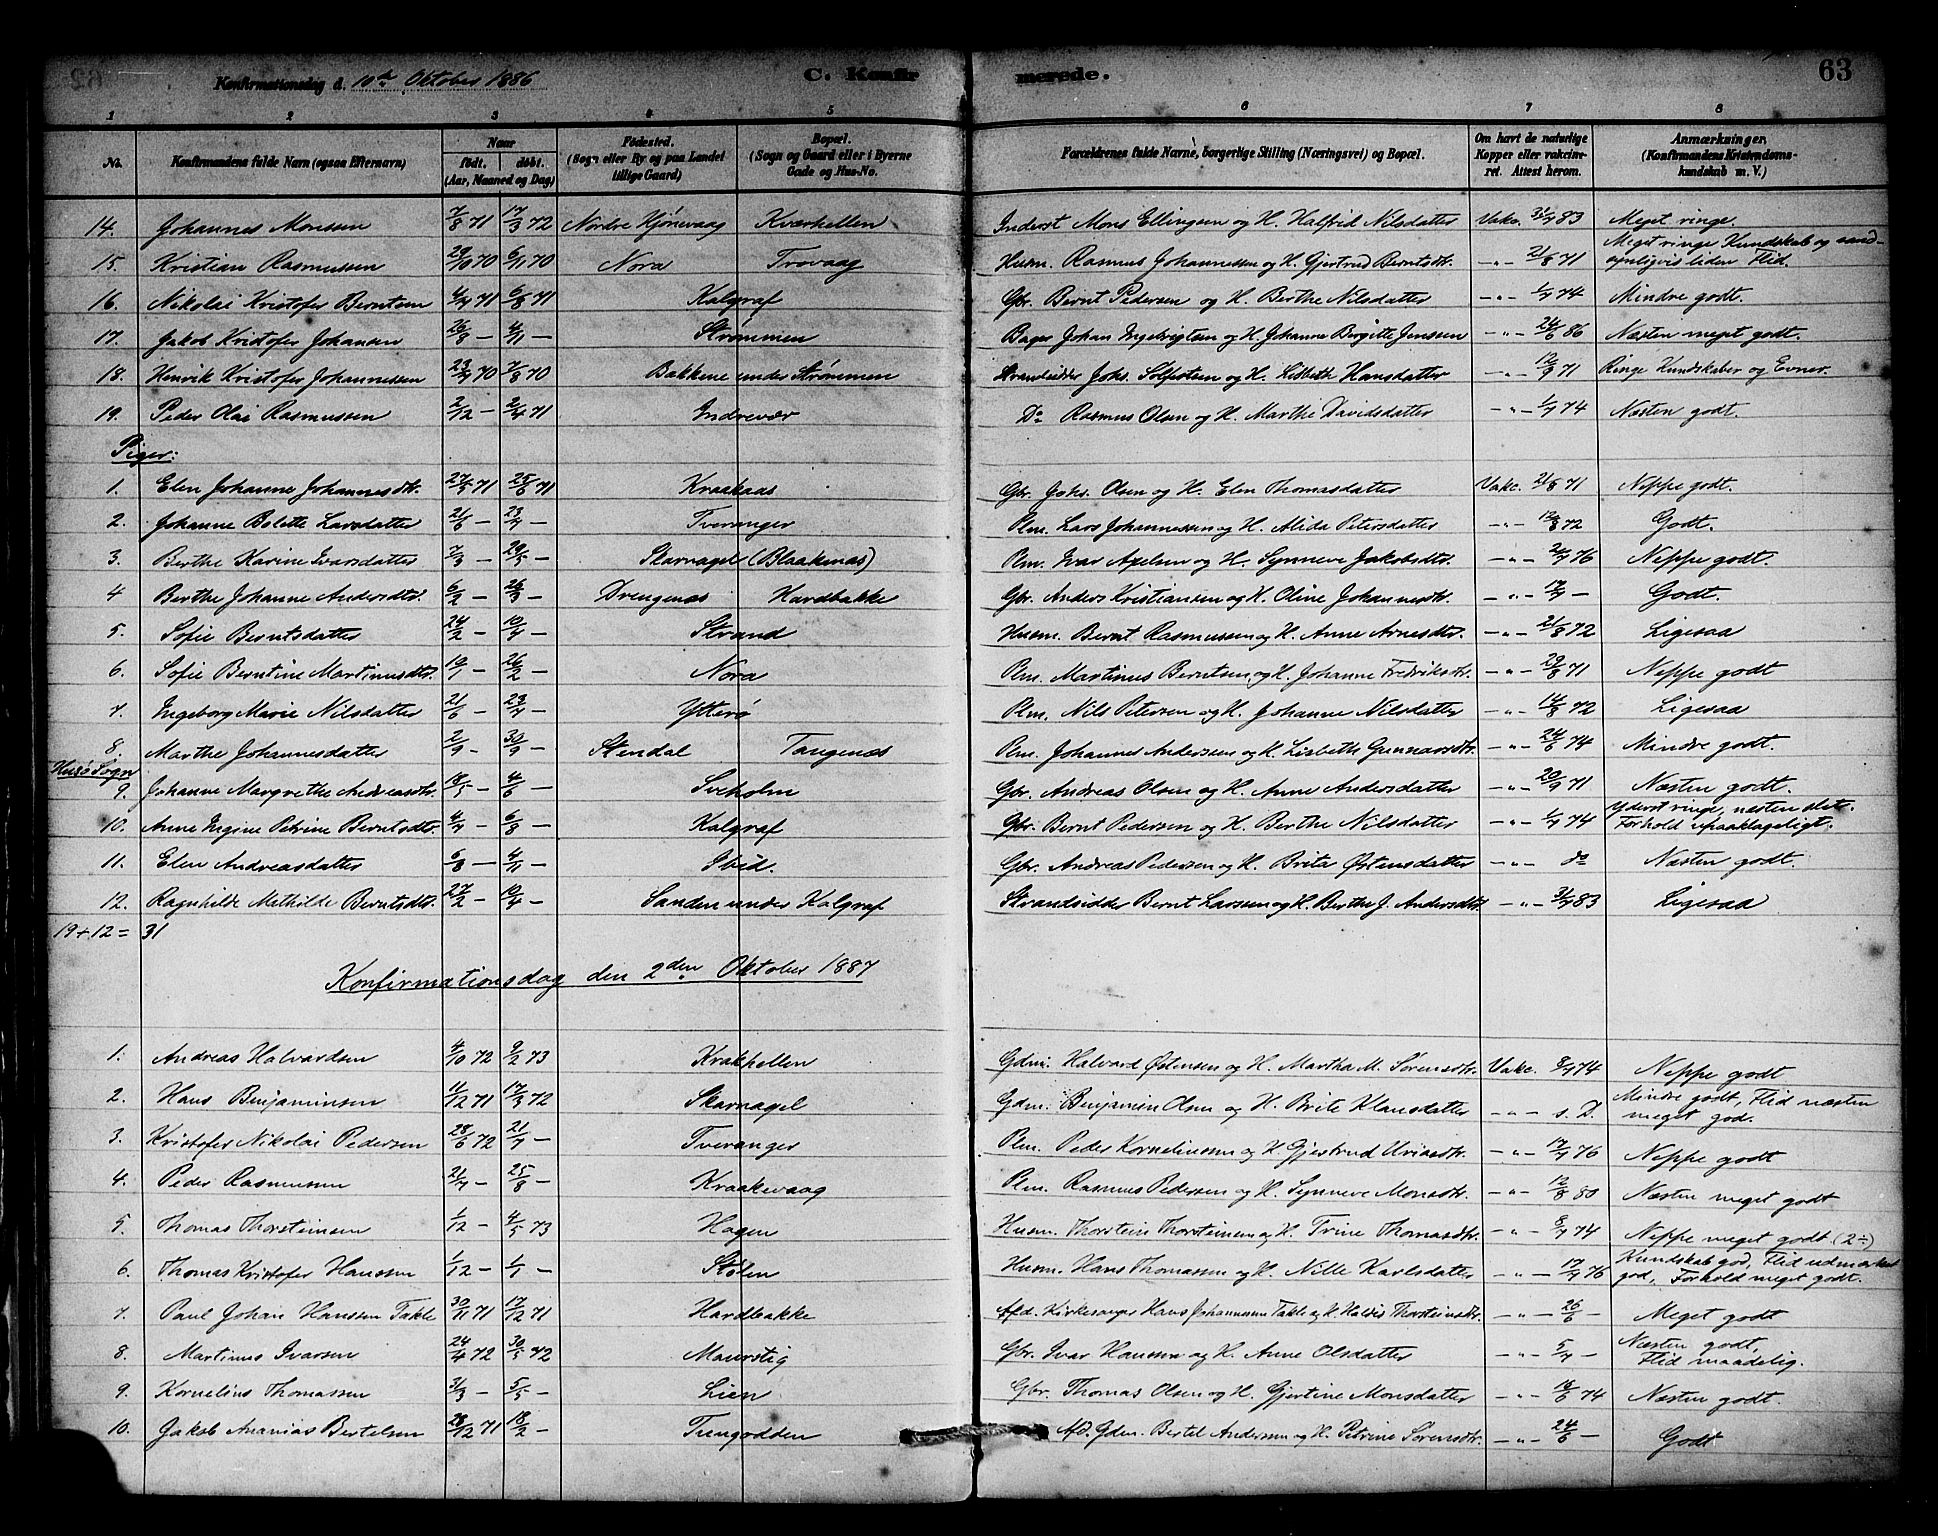 Konfirmationsdag d. 10de Oktober 1886 C. Konfirmerede. 63
1 2 3 4 5 6 7 8
No. Konfirmandens fulde Navn (ogsaa Efternavn) Naar født. døbt. (Aar, Maaned og Dag) Fødested. (Sogn eller By og paa Landet tillige Gaard) Bopæl. (Sogn og Gaard eller i Byerne Gade og Hus-No. Forældrenes fulde Navne, borgerlige Stilling (Næringsvei) og Bopæl. Om havt de naturlige Kopper eller vakcineret. Attest herom. Anmærkninger. (Konfirmandens Kristendomskundskab m. V.)
14. Johannes Monssen 7/8 71 17/3 72 Nordre Hjönevaag Kværhellen Inderst Mons Ellingsen og H. Halfrid Nilsdatter Vakc. 31/7 83 Meget ringe.
15. Kristian Rasmussen 29/10 70 6/11 70 Nora Trovaag Husm. Rasmus Johannessen og H. Gjertrud Berntsdtr. -"- 21/8 71 Meget ringe Kundskab og sandsynligvis liden Flid.
16. Nikolai Kristofer Berntsen 4/7 71 6/8 71 Kalgraf Gbr. Bernt Pedersen og H. Berthe Nilsdatter -"- 1/7 74 Mindre godt.
17. Jakob Kristofer Johansen 26/8 — 4/11 — Strømmen Bager Johan Ingebrigtsen og H. Johanne Birgitte Jenssen -"- 24/6 86 Næsten meget godt.
18. Henrik Kristofer Johannessen 23/7 70 7/8 70 Bakkene under Strømmen Strandsidder Johs. Solfestsen og H. Lisbeth Hansdatter -"- 12/9 71 Ringe Kundskaber og Evner.
19. Peder Olai Rasmussen 2/12 — 2/4 71 Indrevær Do Rasmus Olsen og H. Marthe Davidsdatter -"- 1/7 74 Næsten godt.
Piger:
1. Elen Johanne Johannesdtr. 27/5 71 25/6 71 Kraakaas Gbr. Johs. Olsen og H. Elen Thomasdatter Vakc. 21/8 71 Neppe godt.
2. Johanne Bolette Larsdatter 21/6 — 23/7 — Tveranger Plm. Lars Johannessen og H. Alida Petersdatter -"- 12/8 72 Godt.
3. Berthe Karine Ivarsdatter 7/3 — 29/5 — Skarnagel (Blaakenæs) Plm. Ivar Axelsen og H. Synneve Jakobsdtr. -"- 2/7 76 Neppe godt.
4 Berthe Johanne Andersdtr. 6/2 — 26/3 — Drengenæs Hardbakke Gbr. Anders Kristiansen og H. Oline Johannesdtr. -"- 17/7 — Godt.
5. Sofie Berntsdatter 24/2 — 10/4 — Strand Husm. Bernt Rasmussen og H. Anne Arnesdtr. -"- 21/8 72 Ligesaa
6. Sofie Berntine Martinusdtr. 19/1 — 26/2 — Nora Plm. Martinus Berntsen og H. Johanne Fredriksdtr. -"- 29/8 71 Neppe godt
7. Ingeborg Marie Nilsdatter 21/6 — 23/7 — Ytterö Plm. Nils Petersen og H. Johanne Nilsdatter -"- 14/8 72 Ligesaa
8. Marthe Johannesdatter 2/9 — 30/9 — Stendal Tangenæs Plm. Johannes Anderssen og H. Lisbeth Gunnarsdtr. -"- 24/6 74 Mindre godt.
Husø Sogn
9. Johanne Margrethe Andreasdtr. 18/5 — 4/6 — Sveholm Gbr. Andreas Olsen og H. Anne Andersdatter -"- 20/9 71 Næsten godt.
10. Anne Ingine Petrine Berntsdtr. 4/7 — 6/8 — Kalgraf Gbr. Bernt Pedersen og H. Berthe Nilsdatter -"- 1/7 74 Yderst ringe, næsten slet. Forhold upaaklageligt.
11. Elen Andreasdatter 6/8 — 4/11 — Steid. Gbr. Andreas Pedersen og H. Brita Østensdatter -"- do Næsten godt.
12. Ragnhilde Mathilde Berntsdtr. 27/2 — 10/4 — Sanden under Kalgraf Strandsidder Bernt Larssen og H. Berthe J. Andersdtr. -"- 31/7 83 Ligesaa
19 + 12 = 31
Konfirmationsdag den 2den Oktober 1887
1. Andreas Halvardsen 4/10 72 9/2 73 Krakhellen Gdm. Halvard Østensen og H. Martha M. Sörensdtr. Vakc. 8/7 74 Neppe godt
2. Hans Benjaminsen 11/12 71 17/3 72 Skarnagel Gdm. Benjamin Olsen og H. Brite Klausdatter -"- s. D. Mindre godt, Flid næsten meget god.
3. Kristofer Nikolai Pedersen 28/6 72 21/7 — Tveranger Plm. Peder Korneliussen og H. Gjertrud Uriasdtr. -"- 17/7 76 Neppe godt
4. Peder Rasmussen 21/7 — 25/8 — Kraakevaag Plm. Rasmus Pedersen og H. Synneve Monsdtr. -"- 12/8 80 Næsten meget godt
5. Thomas Thorsteinsen 1/12 — 4/5 73 Hagen Husm. Thorstein Thorsteinsen og H. Trine Thomasdtr. -"- 8/7 74 Neppe meget godt (2÷)
6. Thomas Kristofer Hanssen 1/12 — 1/1 — Stølen Husm. Hans Thomassen og H. Nille Karlsdatter -"- 17/7 76 Kundskab god, Flid udmærket god, Forhold meget godt.
7. Paul Johan Hanssen Takle 30/11 71 17/12 71 Hardbakke Afd. Kirkesanger Hans Johannessen Takle og H. Haldis Thorsteinsdtr. -"- 26/6 — Meget godt
8. Martinus Ivarsen 24/4 72 30/5 72 Maurstig Gbr. Ivar Hanssen og H. Anne Olsdatter -"- 5/7 — Næsten godt, Flid maadelig.
9. Kornelius Thomassen 31/3 — 5/5 — Lien Gbr. Thomas Olsen og H. Gjertine Monsdatter -"- 18/6 74 Næsten godt.
10. Jakob Ananias Bertelsen 28/12 71 18/2 — Tungodden Afd. Gdm. Bertel Andersen og H. Petrine Sörensdtr. -"- 24/6 — Godt